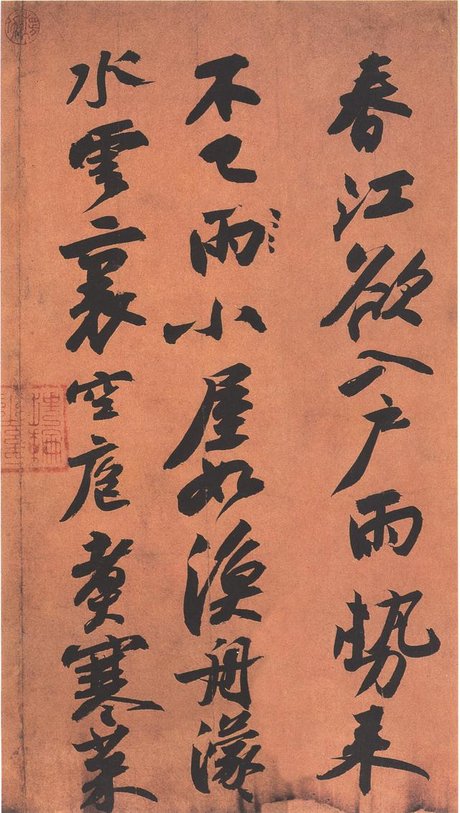 春江欲入户雨勢来
不已雨小屋如漁舟濛々
水雲裏空庖煮寒菜